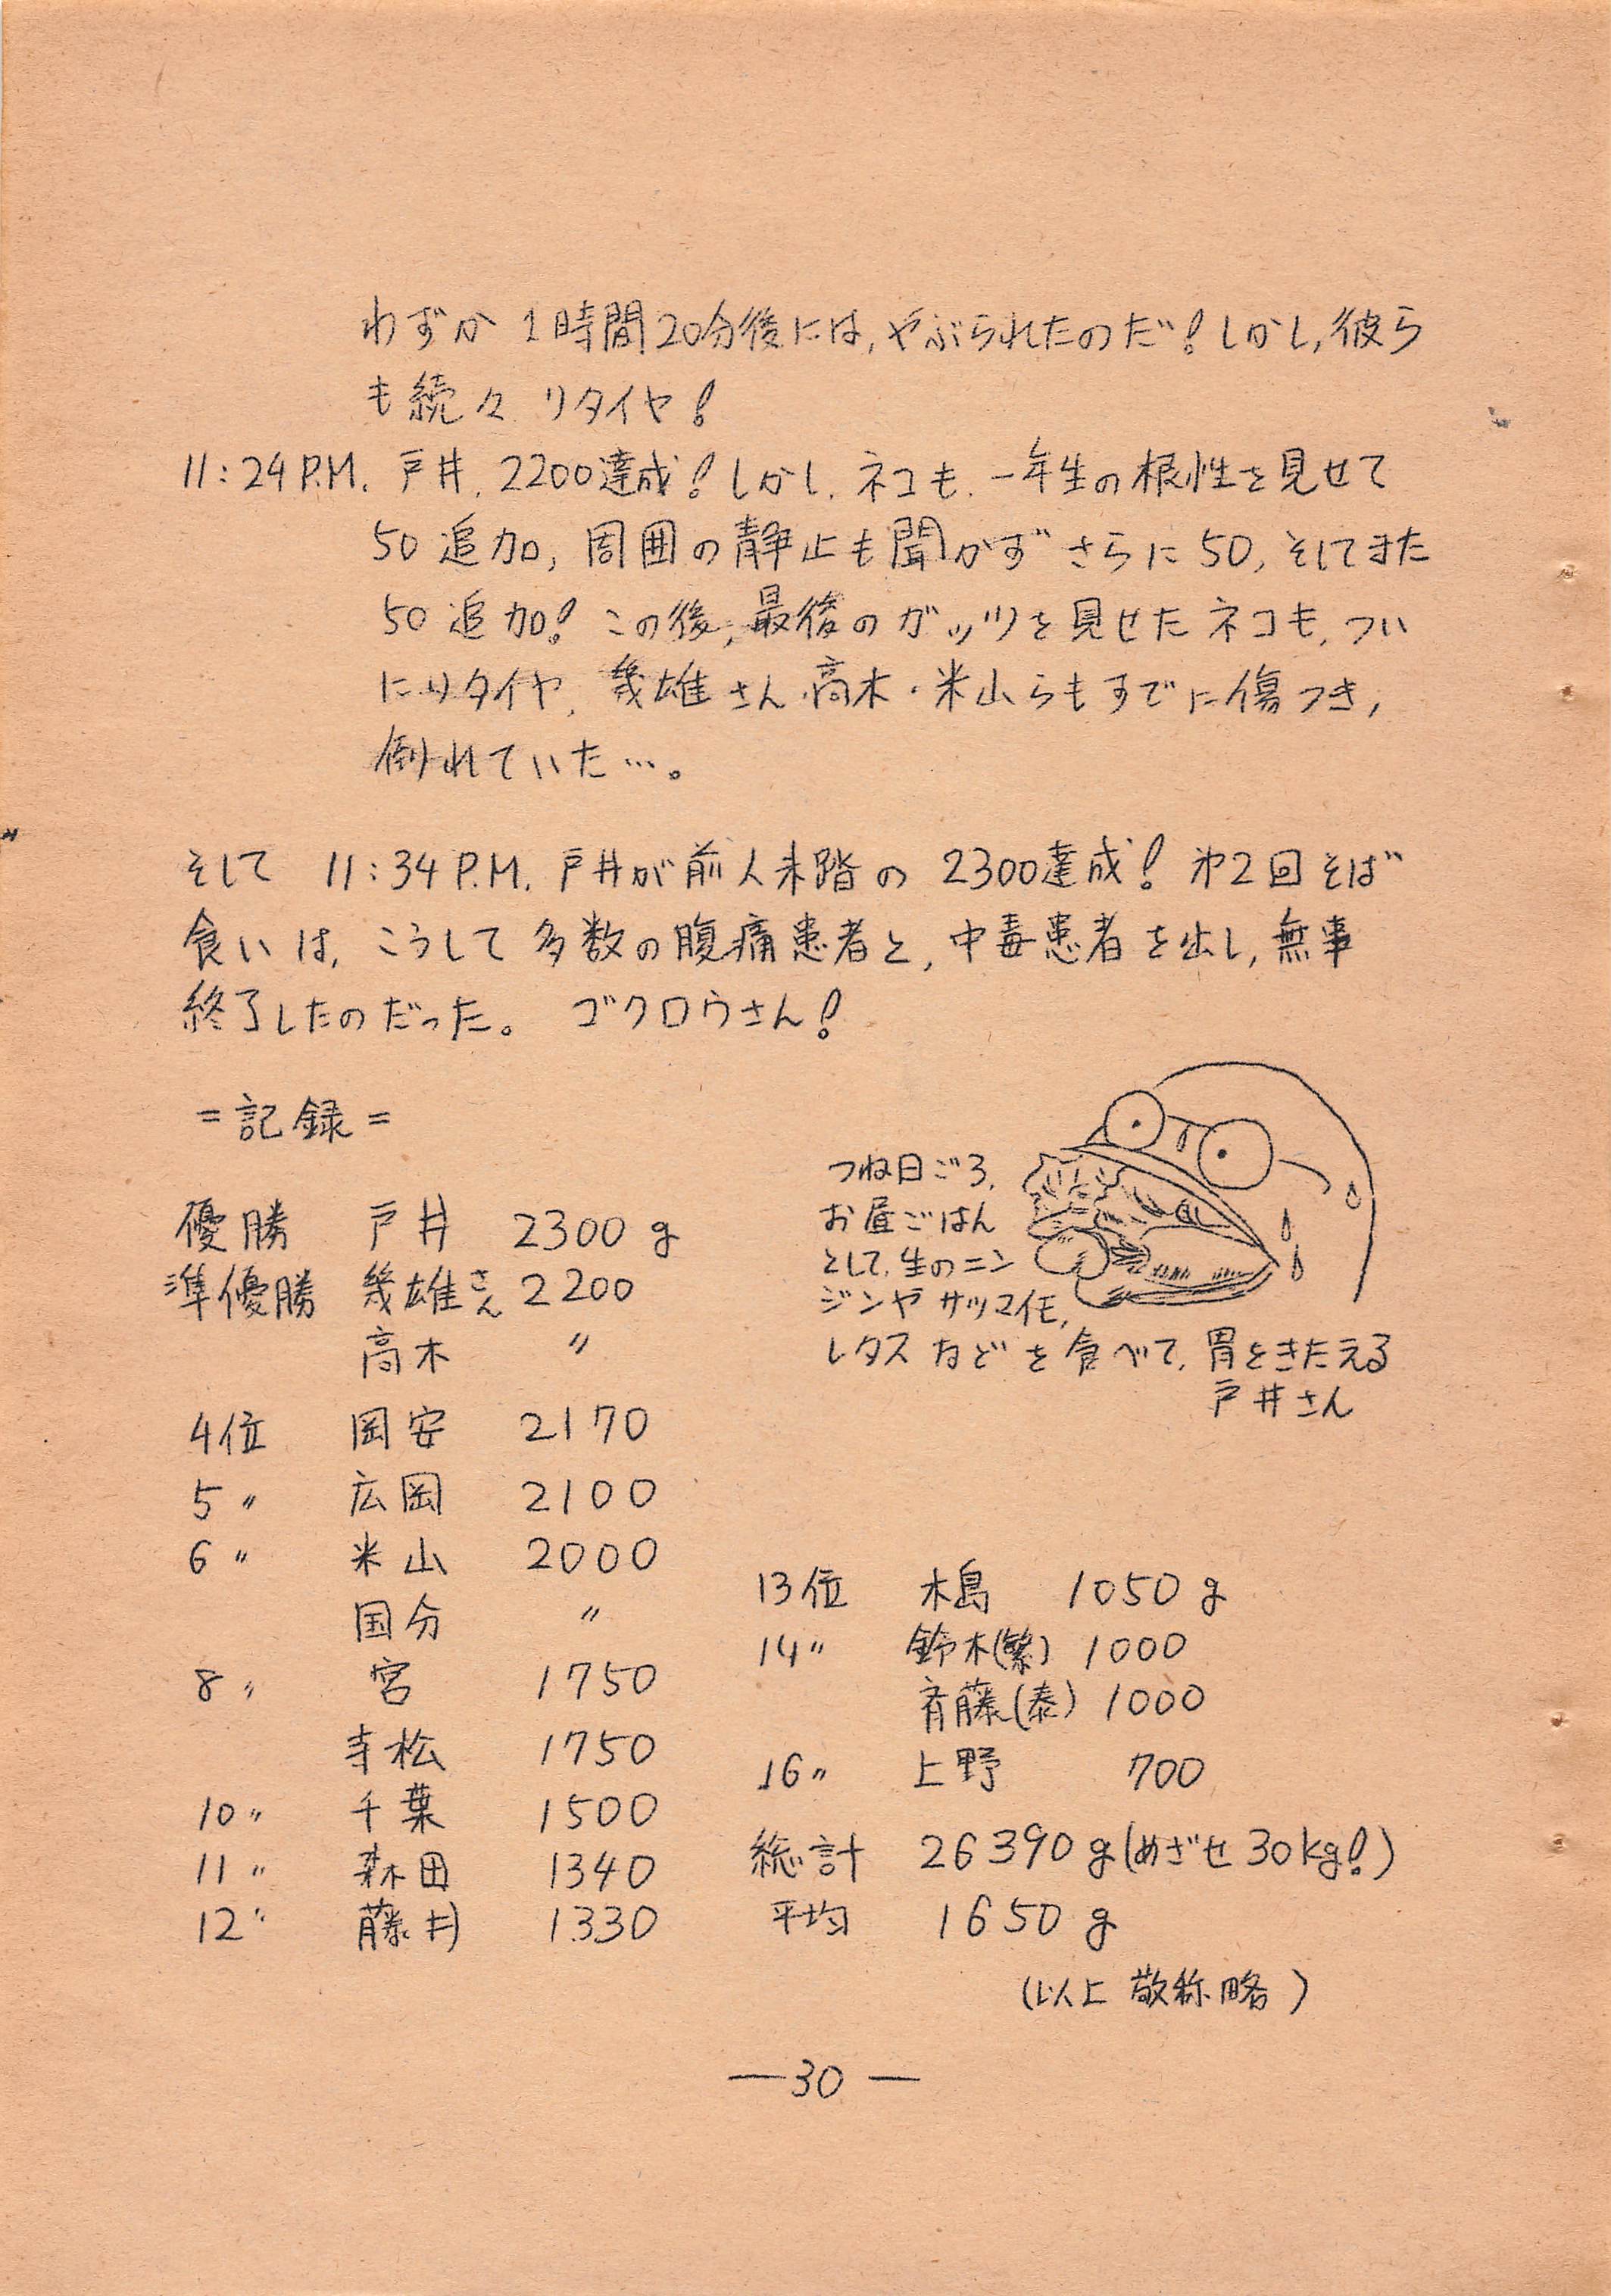 わずか 1時間20分後には, やぶられたのだ! しかし, 彼ら
も続々 リタイヤ!
11:24 P.M. 戸井. 2200達成! しかし. ネコも. 一年生の根性を見せて
50 追加, 周囲の静止も聞かず さらに 50, そしてまた
50 追加! この後, 最後のガッツを見せたネコも, つい
にリタイヤ. 幾雄さん.高木・米山らもすでに傷つき,
倒れていた…。
そして 11:34 P.M. 戸井が前人未踏の 2300達成! 第2回そば
食いは, こうして多数の腹痛患者と, 中毒患者を出し, 無事
終了したのだった。 ゴクロウさん!
=記録=
優勝 戸井 2300 g
準優勝 幾雄さん 2200
高木 〃
4位 岡安 2170
5 〃 広岡 2100
6 〃 米山 2000
国分 〃
8 〃 宮 1750
寺松 1750
10 〃 千葉 1500
11 〃 森田 1340
12 〃 藤井 1330
つね日ごろ,
お昼ごはん
として, 生のニン
ジンや サツマイモ,
レタス などを 食べて, 胃をきたえる
戸井さん
13位 木島 1050 g
14 〃 鈴木(繁) 1000
斉藤(泰) 1000
16 〃 上野 700
総計 26390 g (めざせ 30kg!)
平均 1650 g
(以上 敬称略)
—30—